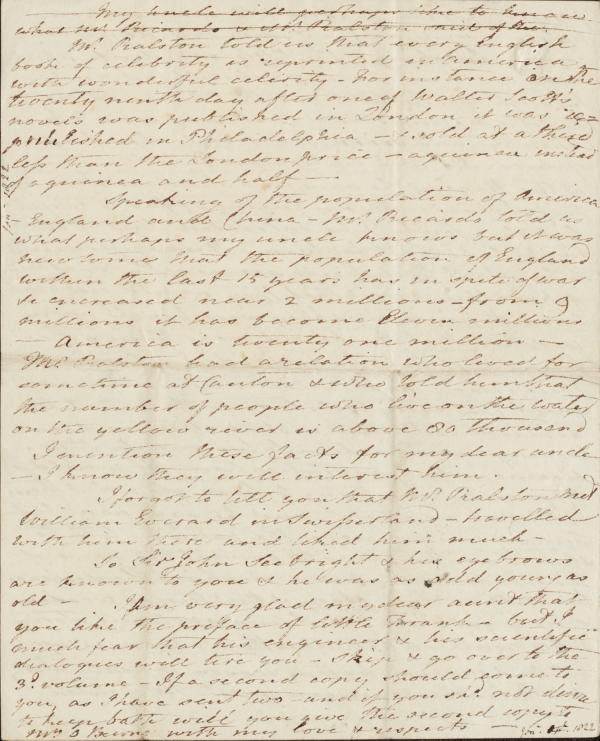 My uncle will perhaps like to know
what Mr. Ricardo & Mr. Ralston said of the
Mr. Ralston told us that every English
book of celebrity is reprinted in America
with wonderful celerity - For instance on the
twenty ninth day after one of Walter Scott's
novels was published in London it was re=
published in Philadelphia - & sold at a third
less than the London price - a guinea instead
of a guinea and half -
Speaking of the population of America
- England and China - Mr. Ricardo told us
what perhaps my uncle knows but it was
new to me that the population of England
within the last 15 years has in spite of war
&c encreased near 2 millions - from 9
millions it has become Eleven millions
- America is twenty one million -
Mr. Ralston had a relation who lived for
sometime at Canton & who told him that
the number of people who live on the water
on the yellow river is above 80 thousand
I mention these facts for my dear uncle
- I know they will interest him.
I forgot to tell you that Mr. Ralston met
William Everard in Swisserland - travelled
with him there and liked him much -
So Sir John Seebright & his eyebrows
are known to you & he was as odd young as
old - I am very glad my dear aunt that
you like the preface of little Frank - but I
much fear that his engineer & his scientific
dialogues will tire you - skip & go over to the
3d. volume - If a second copy should come to
you, as I have sent two - and if you shd. not desire
to keep both will you give the second copy to
Mrs. O Beirne with my love & respects -
Jan. 1822